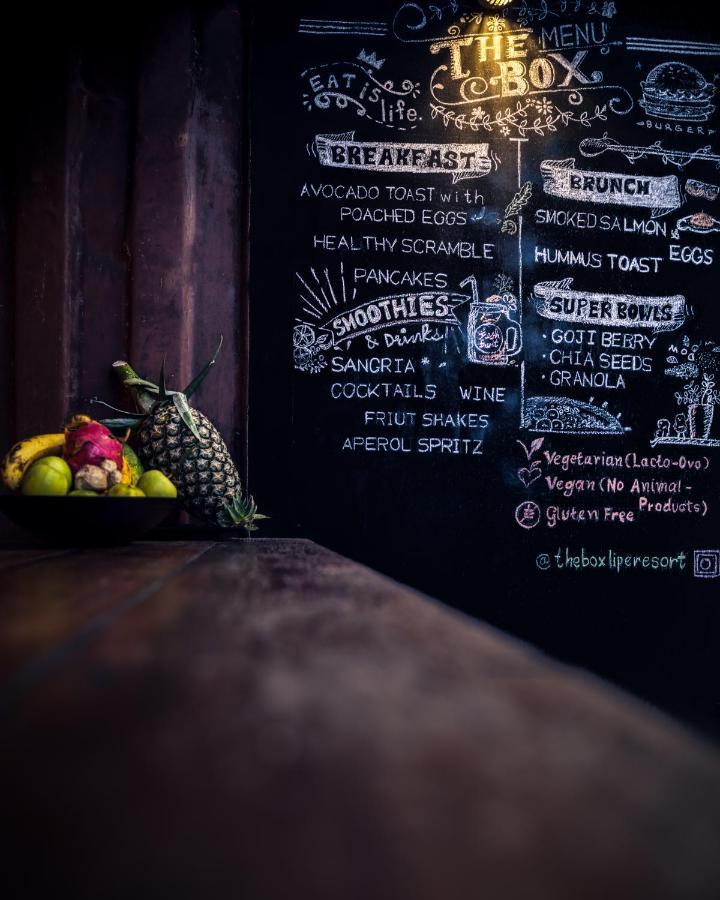 THE BOX MENU
EAT is life.
BURGER
BREAKFAST
AVOCADO TOAST with
POACHED EGGS
HEALTHY SCRAMBLE
PANCAKES
SMOOTHIES
& Drinks!
SANGRIA
COCKTAILS WINE
FRIUT SHAKES
APEROL SPRITZ
BRUNCH
SMOKED SALMON
EGGS
HUMMUS TOAST
SUPER BOWLS
· GOJI BERRY
· CHIA SEEDS
· GRANOLA
Vegetarian (Lacto-Ovo)
Vegan (No Animal-
Products)
Gluten Free
@theboxliperesort